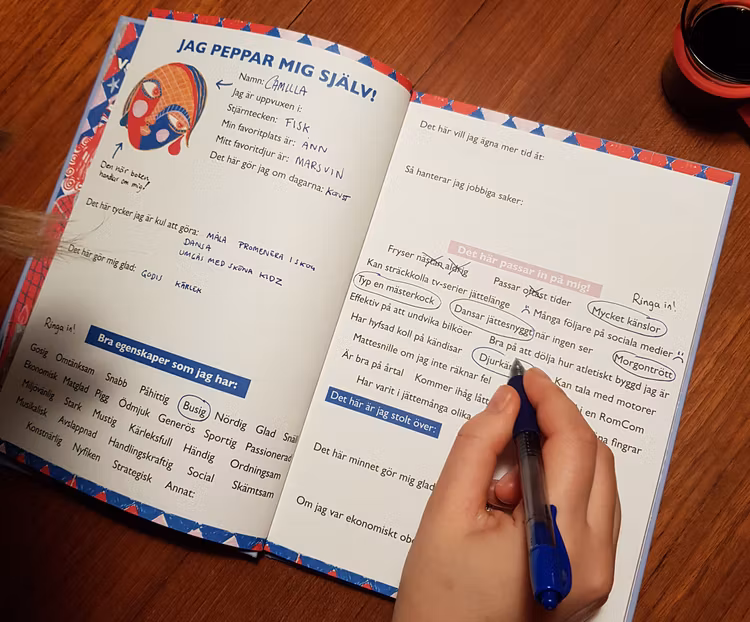 JAG PEPPAR MIG SJÄLV!
Namn: CAMILLA
Jag är uppvuxen i:
Stjärntecken: FISK
Min favoritplats är: ANN
Mitt favoritdjur är: MARSVIN
Det här gör jag om dagarna:
Den här boken
handlar om mig!
Det här tycker jag är kul att göra: MÅLA PROMENERA I SKOG
DANSA
UMGÅS MED SKÖNA KIDZ
Det här gör mig glad: GODIS KÄRLEK
Ringa in!
Bra egenskaper som jag har:
Gosig Omtänksam Snabb Påhittig Busig Nördig Glad Snäll
Ekonomisk Matglad Pigg Ödmjuk Generös Sportig Passionerad
Miljövänlig Stark Mustig Kärleksfull Händig Ordningsam
Musikalisk Avslappnad Handlingskraftig Social Skämtsam
Konstnärlig Nyfiken Strategisk Annat:
Det här vill jag ägna mer tid åt:
Så hanterar jag jobbiga saker:
Det här passar in på mig!
Ringa in!
Fryser nästan aldrig Passar oftast tider Mycket känslor
Kan sträckkolla tv-serier jättelänge Många följare på sociala medier
Typ en mästerkock Dansar jättesnyggt när ingen ser Morgontrött
Effektiv på att undvika bilköer Bra på att dölja hur atletiskt byggd jag är
Har hyfsad koll på kändisar Kan tala med motorer
Mattesnille om jag inte räknar fel i en RomCom
Är bra på årtal Kommer ihåg fingrar
Har varit i jättemånga olika
Det här är jag stolt över:
Det här minnet gör mig glad
Om jag var ekonomiskt